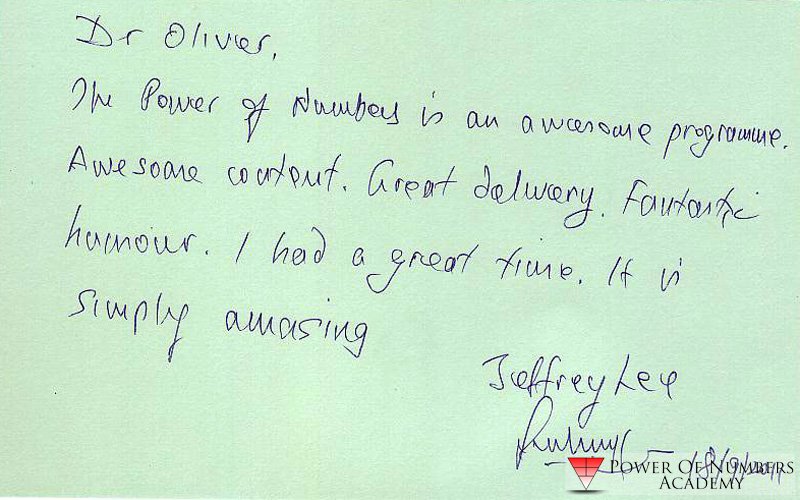 Dr Oliver,
The Power of Numbers is an awesome programme.
Awesome content. Great delivery. Fantastic
humour. I had a great time. It is
simply amazing
Jeffrey Lee
18/9/2011
POWER OF NUMBERS
ACADEMY